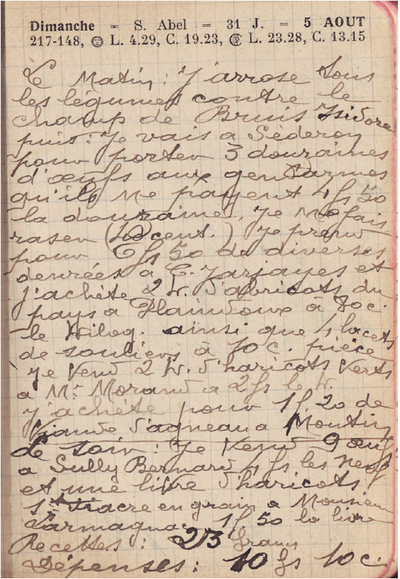 Dimanche = S. Abel = 31 J. = 5 AOUT
217-148, L. 4.29, C. 19.23, L. 23.28, C. 13.15
Matin: J'arrose tous
les légumes contre le
champ de Bruis Isidore
puis: Je vais a Séderon
pour porter 3 douzaines
d'œufs aux gendarmes
qu'ils me payent 4 fs 50
la douzaine. Je me fais
raser (50 cent.) Je prend
pour fs 50 de diverses
denrées a E. Jarjayes et
j'achète 2 K. d'abricots du
pays a à 70 c.
le Kilog. ainsi que 4 lacets
de souliers à 10 c. pièce
Je vend 2 K. d'haricots verts
a Mr Morand a 2 fs le K.
J'achète pour 1 f 20 de
viande d'agneau a Moutin
de soir: Je vend 9 œufs
a Sully Bernard 4 fs les neuf
et une livre d'haricots
St Fiacre en grain a Monsieur
Larmagnac 1 f 50 la livre
Recettes: 23 francs
Dépenses: 10 fs 10 c.